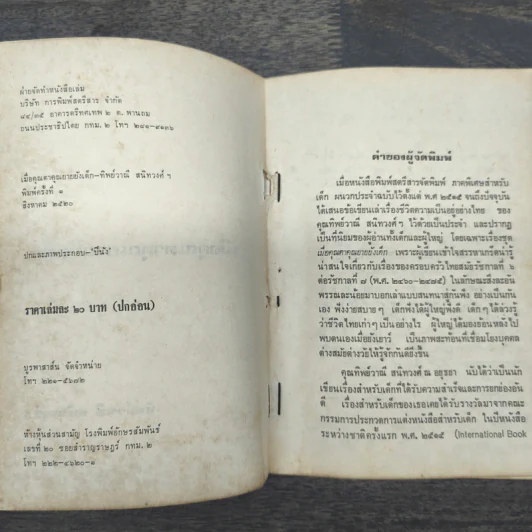 ฝ่ายจัดทำหนังสือเล่ม
บริษัท การพิมพ์สตรีสาร จำกัด
๘๔/๓๕ อาคารตรีทศเทพ ๒ ต. พานถม
ถนนประชาธิปไตย กทม. ๒ โทฯ ๒๘๑-๔๑๓๖
เมื่อคุณตาคุณยายยังเด็ก-ทิพย์วาณี สนิทวงศ์ ฯ
พิมพ์ครั้งที่ ๑
สิงหาคม ๒๕๒๐
ปกและภาพประกอบ-'ปีนัง'
ราคาเล่มละ ๒๐ บาท (ปกอ่อน)
บูรพาสาส์น จัดจำหน่าย
โทฯ ๒๒๑-๕๖๗๒
ห้างหุ้นส่วนสามัญ โรงพิมพ์อักษรสัมพันธ์
เลขที่ ๒๐ ซอยสำราญราษฎร์ กทม. ๒
โทฯ ๒๒๒-๔๖๒๐-๑
คำของผู้จัดพิมพ์
เมื่อหนังสือพิมพ์สตรีสารจัดพิมพ์ ภาคพิเศษสำหรับ
เด็ก ผนวกประจำฉบับไว้ตั้งแต่ พ.ศ ๒๕๑๕ จนถึงปัจจุบัน
ได้เสนอข้อเขียนเล่าเรื่องชีวิตความเป็นอยู่อย่างไทย ของ
คุณทิพย์วาณี สนิทวงศ์ฯ ไว้ด้วยเป็นประจำ และปรากฏ
เป็นที่นิยมของผู้อ่านทั้งเด็กและผู้ใหญ่ โดยเฉพาะเรื่องชุด
เมื่อคุณตาคุณยายยังเด็ก เพราะผู้เขียนเข้าใจสรรหาเกร็ดน่ารู้
น่าสนใจเกี่ยวกับเรื่องของครอบครัวไทยสมัยรัชกาลที่ ๖
ต่อรัชกาลที่ ๗ (พ.ศ. ๒๔๖๐-๒๔๗๕) ในลักษณะสั่งละอัน
พรรณละน้อยมาบอกเล่าแบบสนทนาสู่กันฟัง อย่างเป็นกัน
เอง ฟังง่ายสบาย ๆ เด็กฟังได้ผู้ใหญ่ฟังดี เด็ก ๆ ได้ล่วงรู้
ว่าชีวิตไทยเก่าๆ เป็นอย่างไร ผู้ใหญ่ได้มองย้อนหลังไป
พบตนเองเมื่อยังเยาว์ เป็นภาพสะท้อนที่เชื่อมโยงบุคคล
ต่างสมัยต่างวัยให้รู้จักกันดียิ่งขึ้น
คุณทิพย์วาณี สนิทวงศ์ ณ อยุธยา นับได้ว่าเป็นนัก
เขียนเรื่องสำหรับเด็กที่ได้รับความสำเร็จและการยกย่องอัน
ดี เรื่องสำหรับเด็กของเธอเคยได้รับรางวัลมาจากคณะ
กรรมการประกวดการแต่งหนังสือสำหรับเด็ก ในปีหนังสือ
ระหว่างชาติครั้งแรก พ.ศ. ๒๕๑๕ (International Book